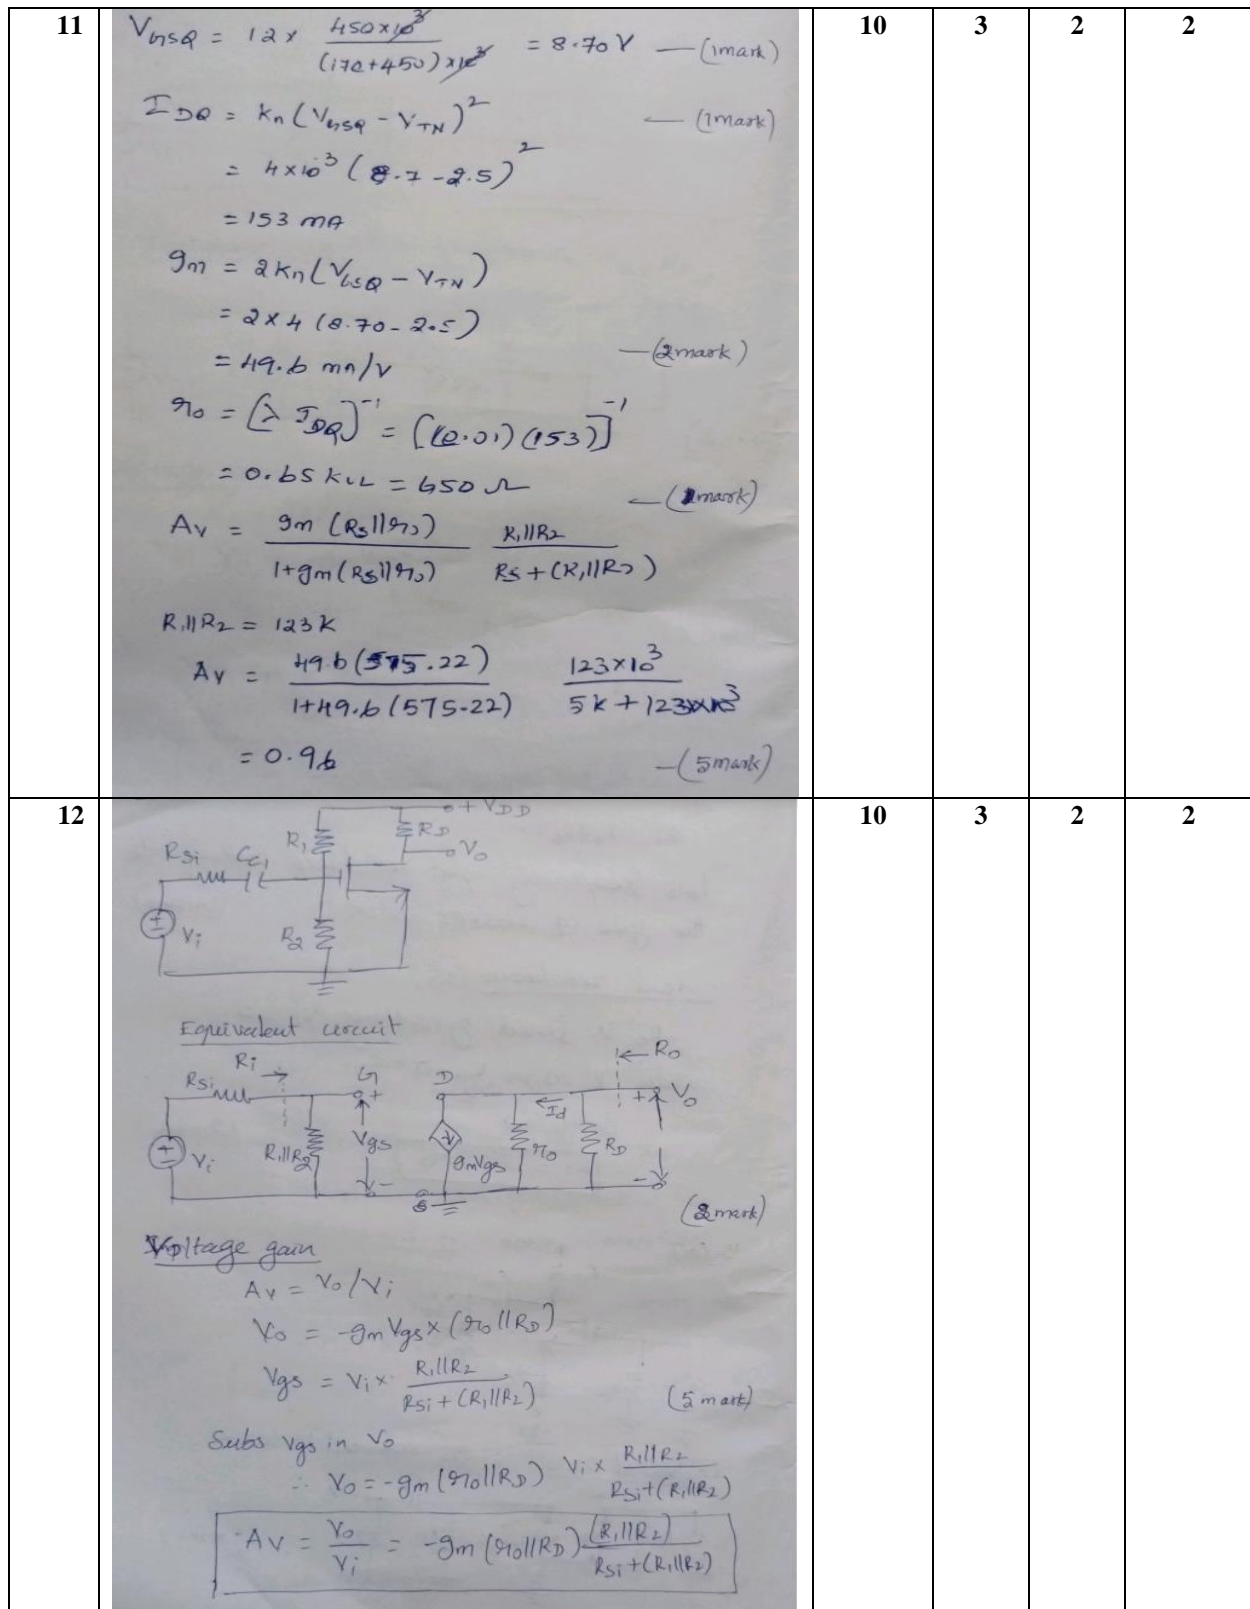 11 10 3 2 2
V_GSQ = 12 × 450×10³ / (170+450)×10³ = 8.70 V — (1mark)
I_DQ = Kn (V_GSQ - V_TN)² — (1mark)
= 4×10³ (8.7 - 2.5)²
= 153 mA
gm = 2Kn (V_GSQ - V_TN)
= 2×4 (8.70 - 2.5)
= 49.6 mA/V — (2mark)
ro = [λ I_DQ]⁻¹ = [(0.01) (153)]⁻¹
= 0.65 kΩ = 650 Ω — (1mark)
Av = gm (Rs||ro) / 1+gm(Rs||ro) R1||R2 / Rs + (R1||R2)
R1||R2 = 123K
Av = 49.6 (575.22) / 1+49.6 (575.22) 123×10³ / 5k + 123×10³
= 0.96 — (5mark)
12 10 3 2 2
+ V_DD
R1 RD
Rsi Cc1 Vo
+
Vi R2
Equivalent circuit
Ri Ro
Rsi G D Vo
+ Id +
Vi R1||R2 Vgs gmVgs ro RD
- S -
(2mark)
Voltage gain
Av = Vo/Vi
Vo = -gm Vgs × (ro||RD)
Vgs = Vi × R1||R2 / Rsi + (R1||R2) (5 mark)
Subs Vgs in Vo
∴ Vo = -gm (ro||RD) Vi × R1||R2 / Rsi+(R1||R2)
Av = Vo / Vi = -gm (ro||RD) (R1||R2) / Rsi +(R1||R2)